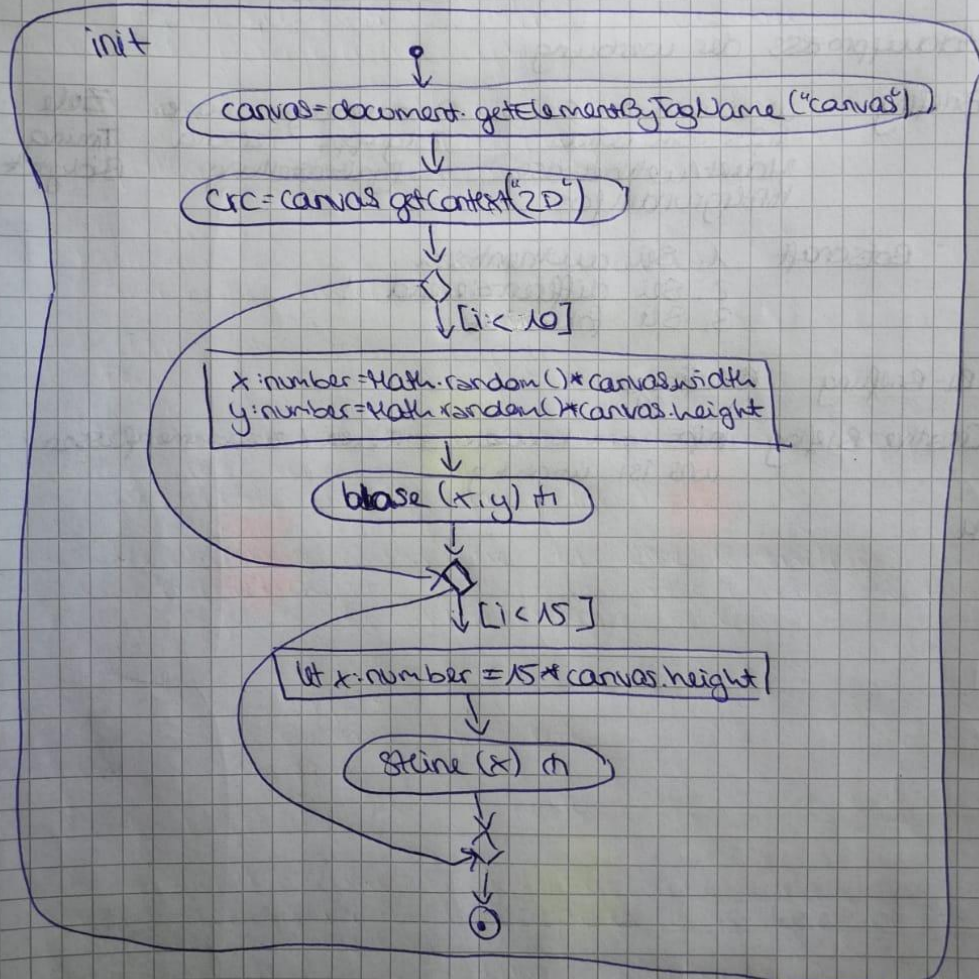 init
canvas=document.getElementByTagName("canvas")
crc=canvas.getContext("2D")
[i< 10]
x:number=Math.random()*canvas.width
y:number=Math.random()*canvas.height
blase (x,y) ⋔
[i<15]
let x:number=15*canvas.height
steine (x) ⋔